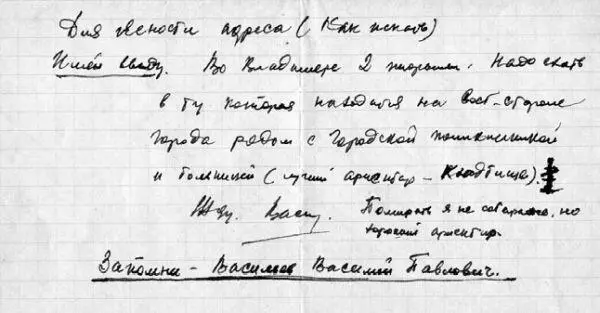 Для ясности адреса (Как искать)
Имей ввиду. Во Владимире 2 тюрьмы. Надо ехать
в ту которая находится на вост-стороне
города рядом с городской поликлиникой
и больницей (лучший ориентир – Кладбище).
Жду. Помирать я не собираюсь, но
хороший ориентир.
Запомни – Васильев Василий Павлович.